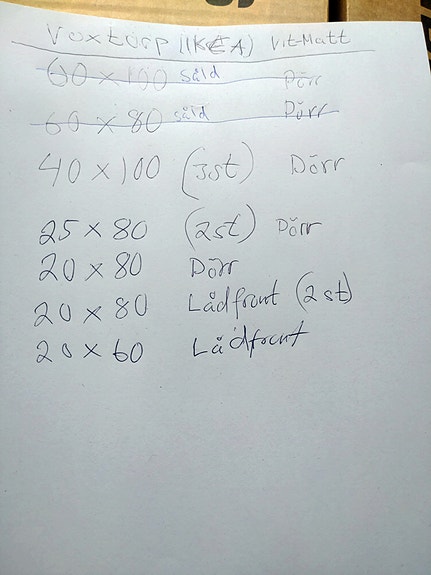 Voxtorp (IKEA) Vit-Matt
60 x 100 såld Dörr
60 x 80 såld Dörr
40 x 100 (3st) Dörr
25 x 80 (2st) Dörr
20 x 80 Dörr
20 x 80 Lådfront (2st)
20 x 60 Lådfront